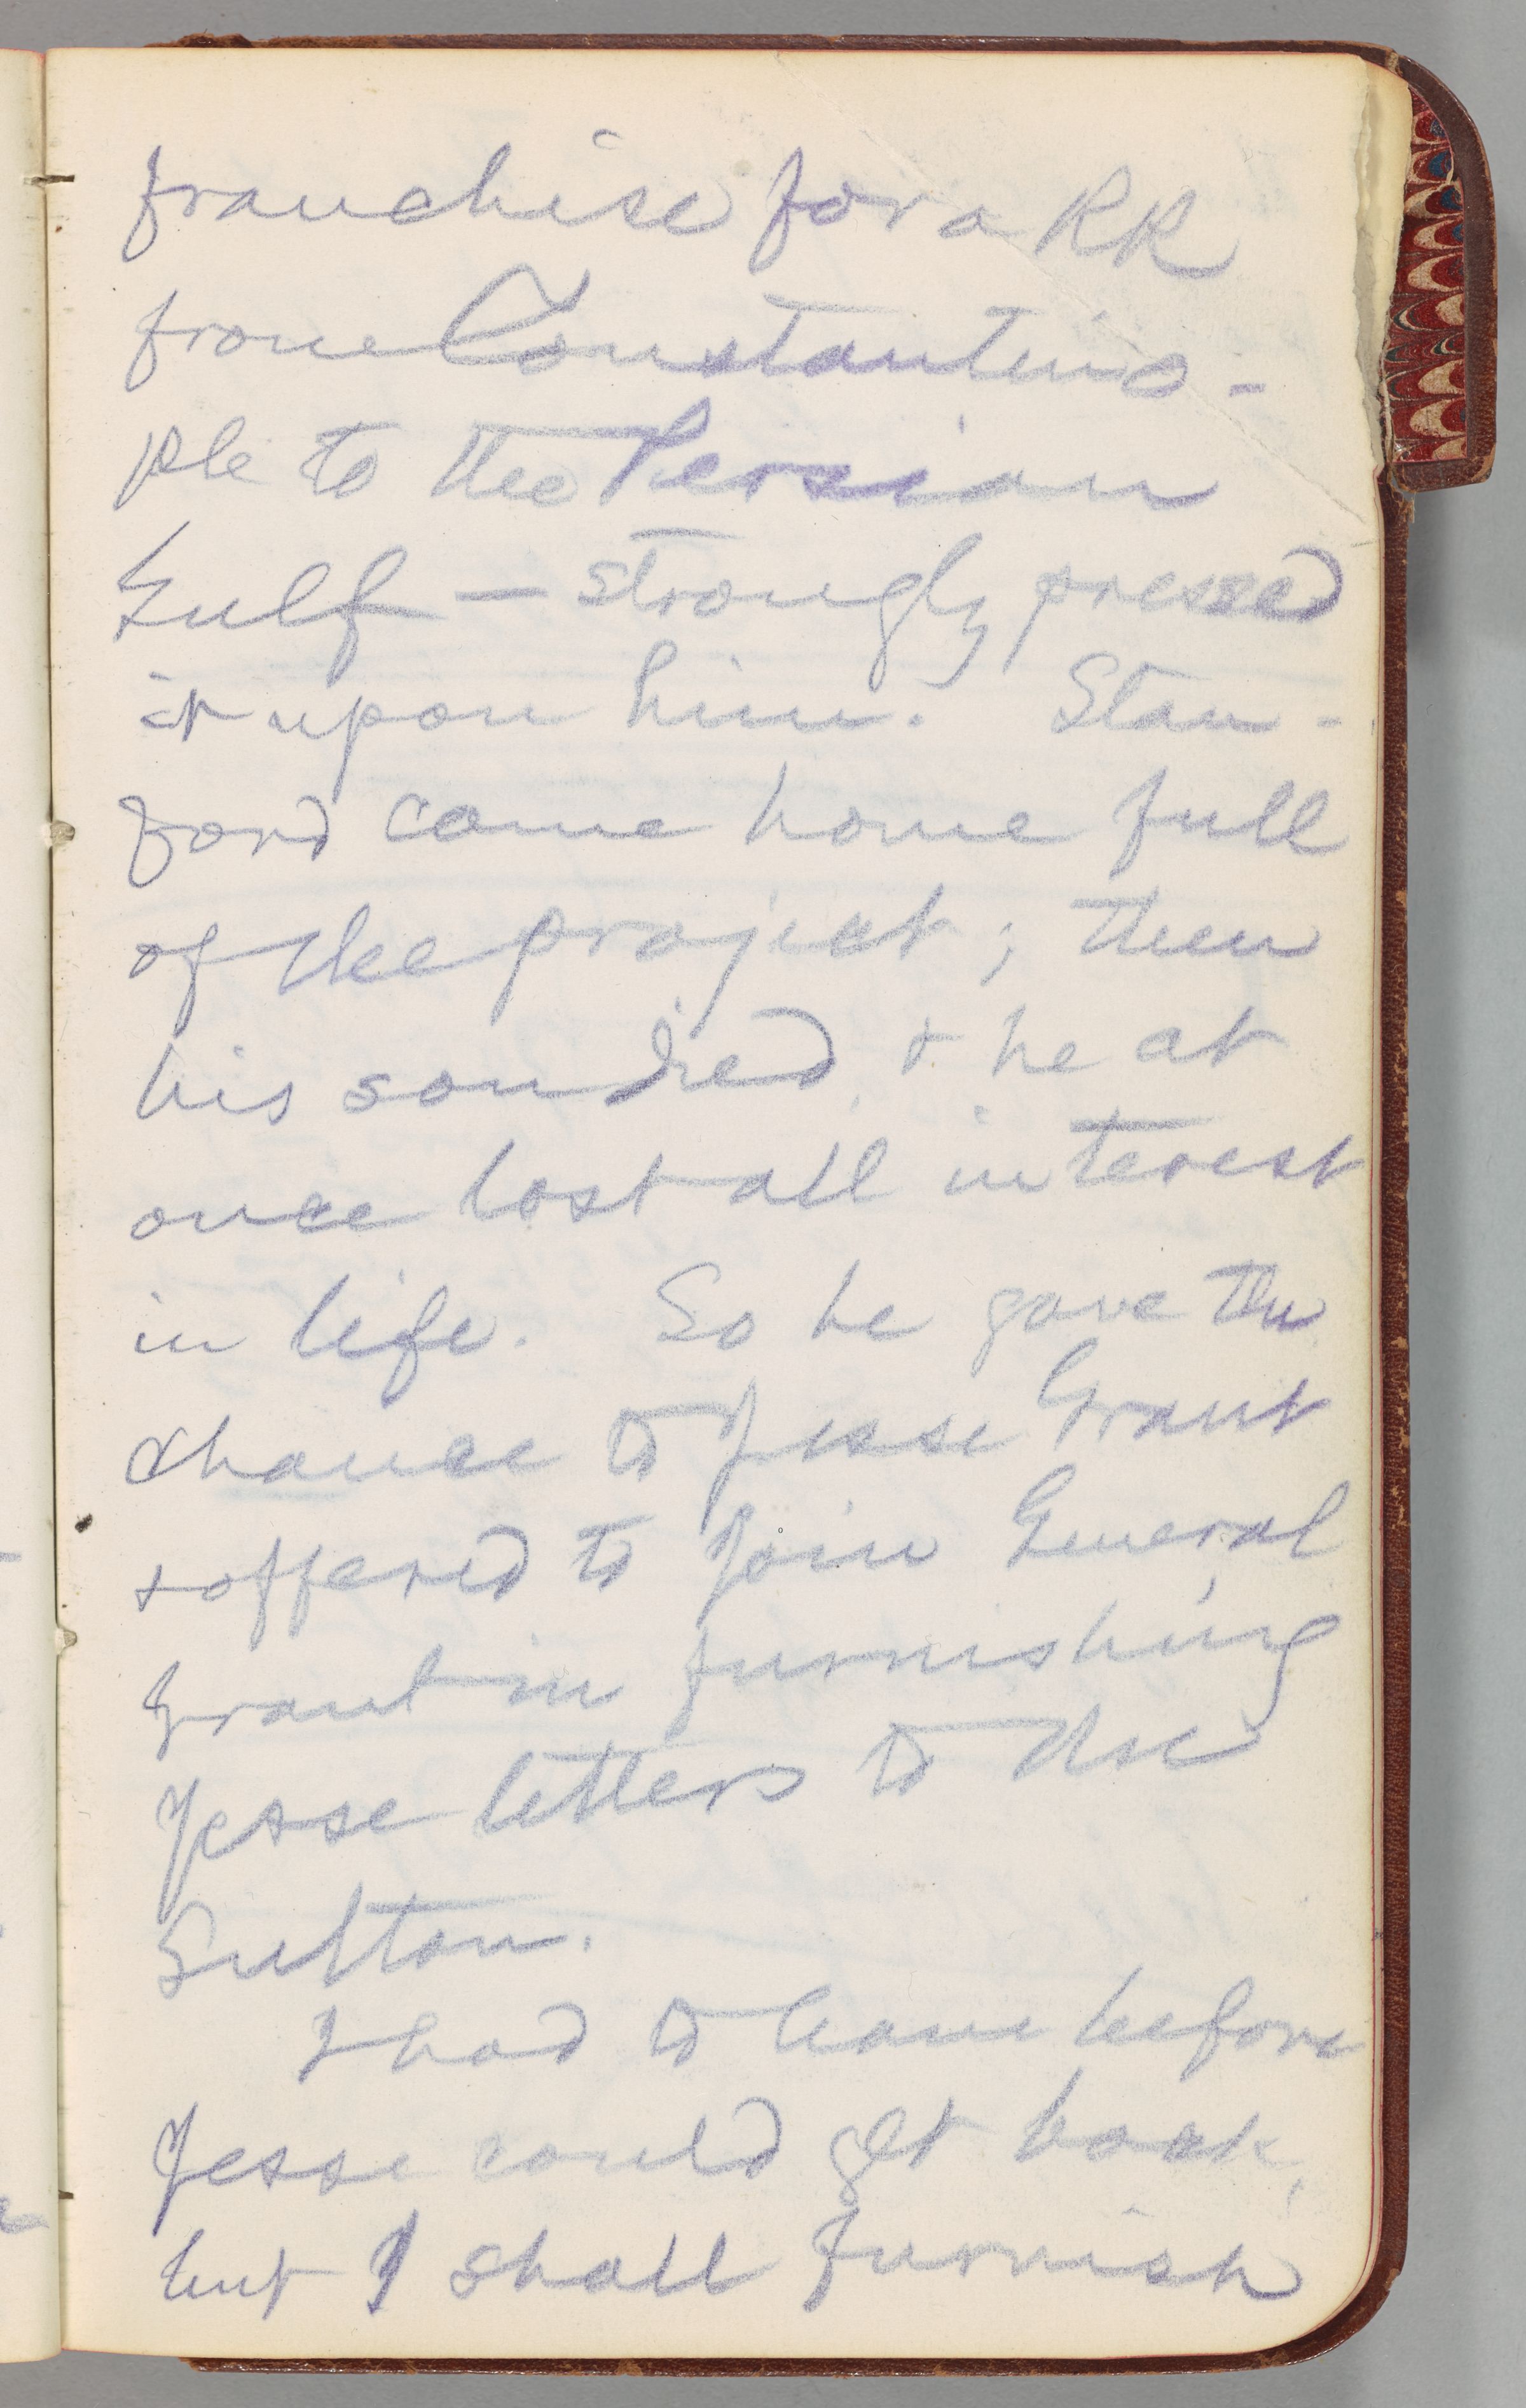 franchise for a RR
from Constantino-
ple to the Persian
Gulf — strongly pressed
it upon him. Stan-
ford came home full
of the project; then
his son died, & he at
once lost all interest
in life. So he gave the
chance to Jesse Grant
& offered to join General
Grant in furnishing
Jesse letters to the
Sultan.
I had to leave before
Jesse could get back,
but I shall furnish